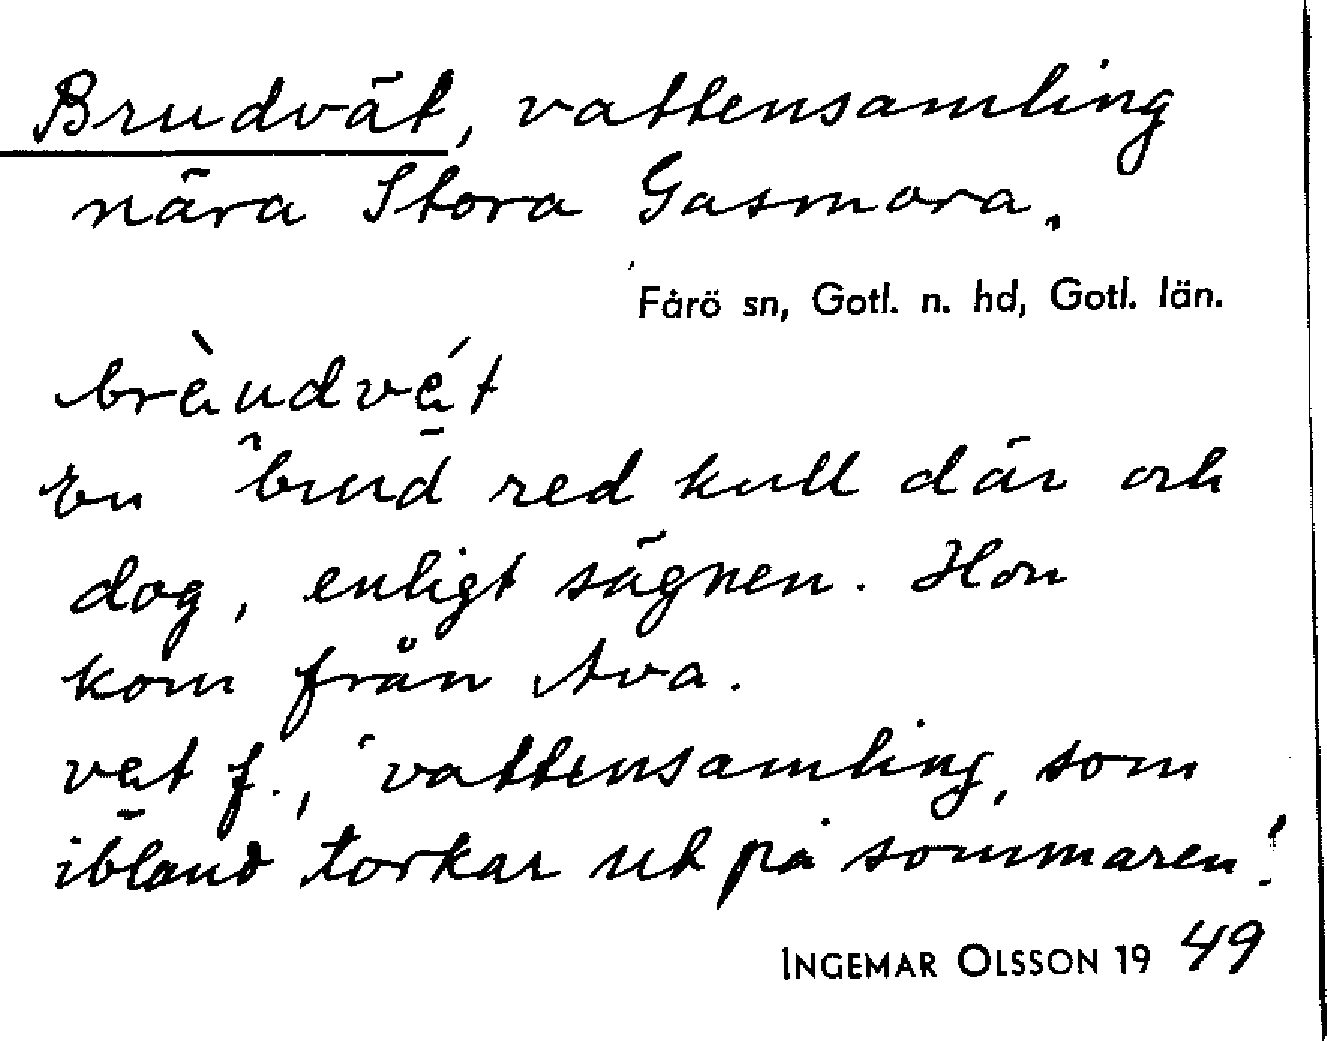 Brudvät, vattensamling
nära Stora Gasmora.
Fårö sn, Gotl. n. hd, Gotl. län.
brèudvét
En brud red kull där och
dog, enligt sägnen. Hon
kom från Ava.
vet f., 'vattensamling, som
ibland torkar ut på sommaren'.
INGEMAR OLSSON 19 49